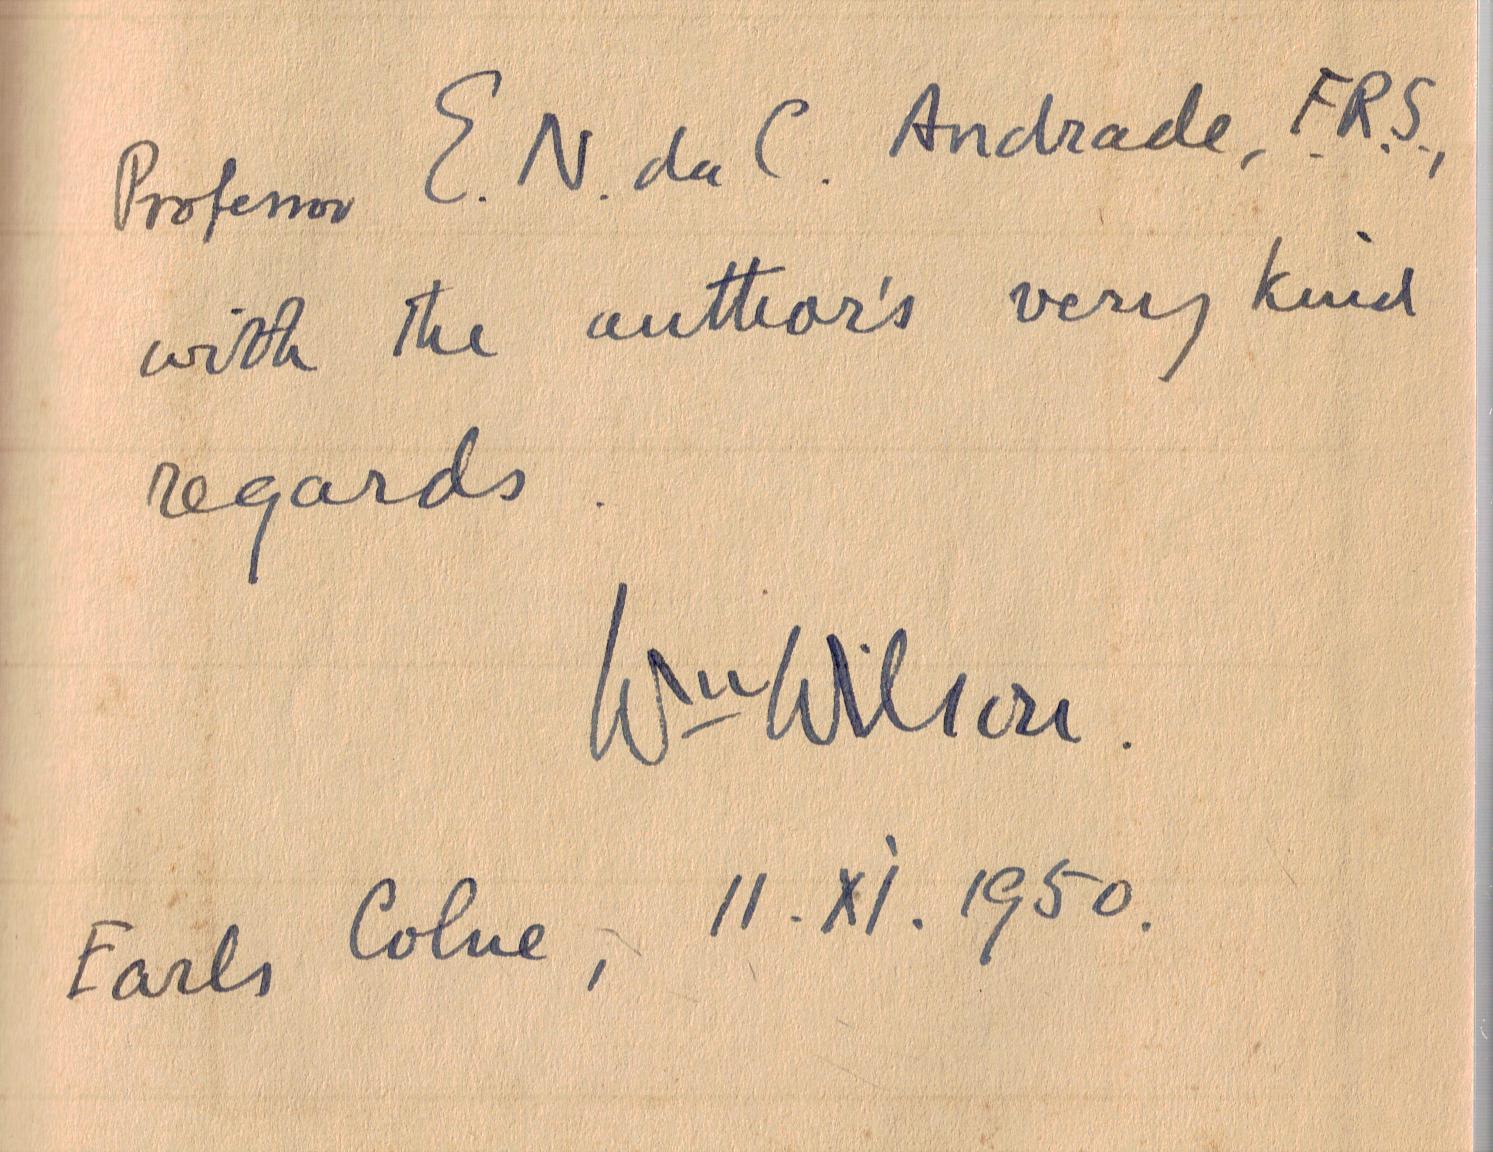 Professor E. N. da C. Andrade, F.R.S.,
with the author's very kind
regards.
Wm Wilson.
Earls Colne, 11. XI. 1950.